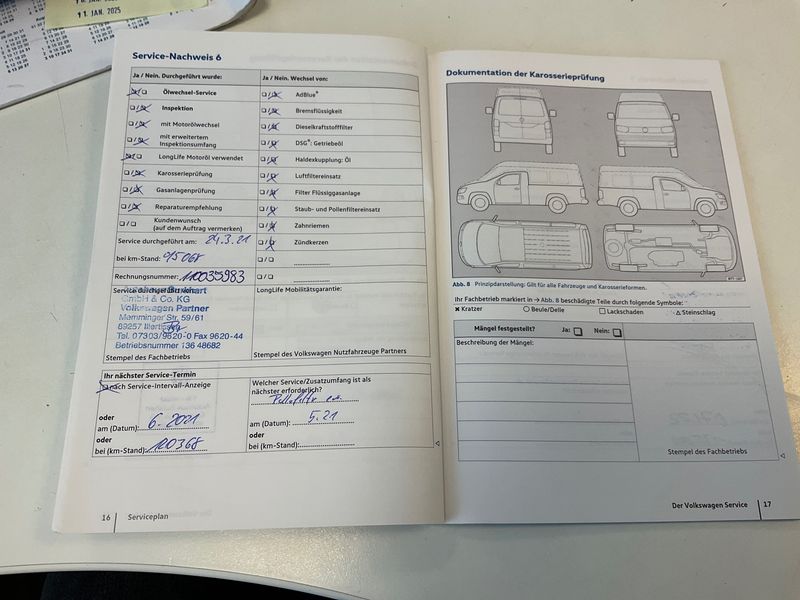 11. JAN. 2025
Service-Nachweis 6
Ja / Nein. Durchgeführt wurde:
Ölwechsel-Service
Inspektion
mit Motorölwechsel
mit erweitertem
Inspektionsumfang
LongLife Motoröl verwendet
Karosserieprüfung
Gasanlagenprüfung
Reparaturempfehlung
Kundenwunsch
(auf dem Auftrag vermerken)
Service durchgeführt am: 24.3.21
bei km-Stand: 95068
Rechnungsnummer: 110035983
GmbH & Co. KG
Volkswagen Partner
Memminger Str. 59/61
89257 Illertissen
Tel. 07303/9520-0 Fax 9620-44
Betriebsnummer 136 48682
Stempel des Fachbetriebs
Ja / Nein. Wechsel von:
AdBlue®
Bremsflüssigkeit
Dieselkraftstofffilter
DSG®: Getriebeöl
Haldexkupplung: Öl
Luftfiltereinsatz
Filter Flüssiggasanlage
Staub- und Pollenfiltereinsatz
Zahnriemen
Zündkerzen
LongLife Mobilitätsgarantie:
Stempel des Volkswagen Nutzfahrzeuge Partners
Ihr nächster Service-Termin
nach Service-Intervall-Anzeige
oder
am (Datum): 6. 2021
oder
bei (km-Stand): 100368
Welcher Service/Zusatzumfang ist als
nächster erforderlich?
am (Datum): 5.21
oder
bei (km-Stand):
16 Serviceplan
Dokumentation der Karosserieprüfung
Abb. 8 Prinzipdarstellung: Gilt für alle Fahrzeuge und Karosserieformen.
Ihr Fachbetrieb markiert in → Abb. 8 beschädigte Teile durch folgende Symbole:
Kratzer Beule/Delle Lackschaden Steinschlag
Mängel festgestellt? Ja: Nein:
Beschreibung der Mängel:
Stempel des Fachbetriebs
Der Volkswagen Service 17